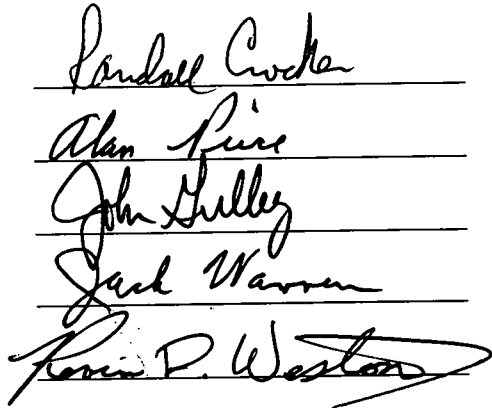 Randall Crocker
Alan Pirie
John Gulley
Jack Warren
Kevin D. Weston